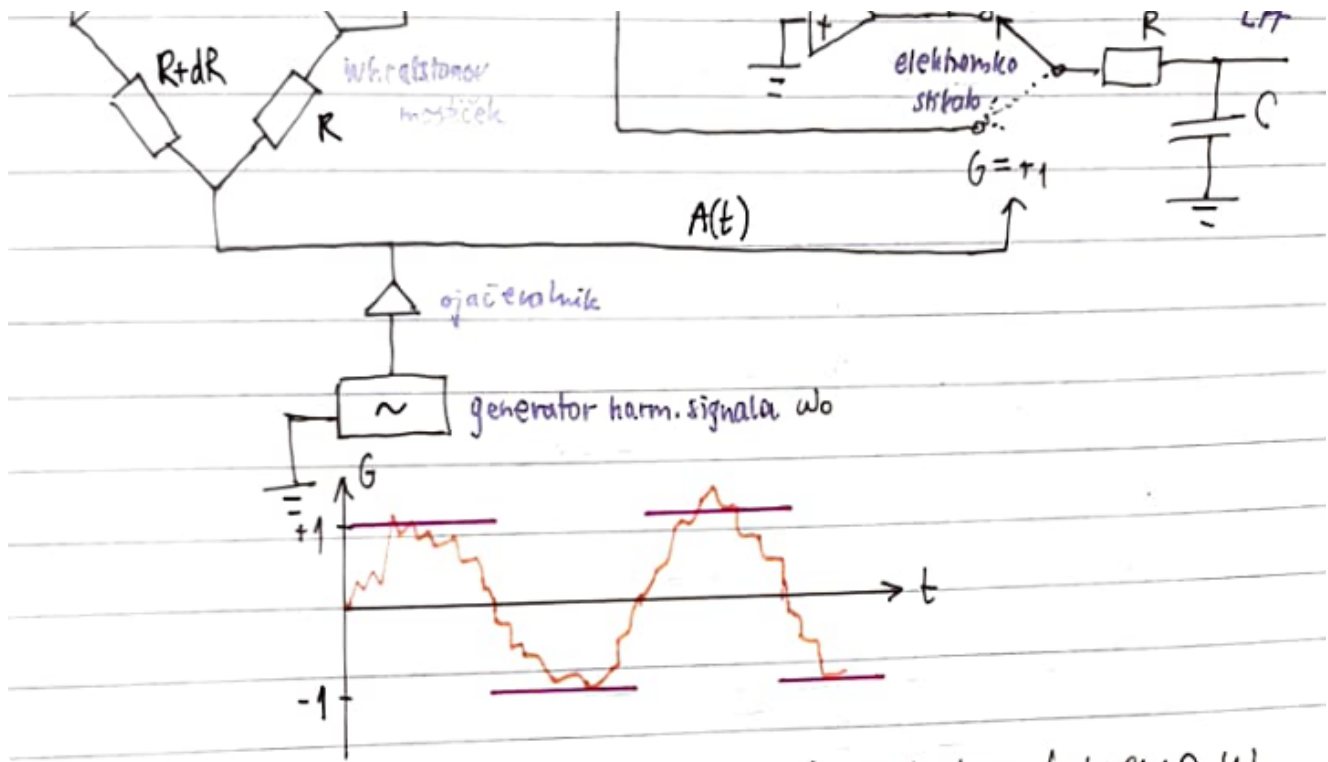 R+dR
R
wheatstonov
mostiček
+
elektronsko
stikalo
G=+1
R
C
A(t)
ojačevalnik
~
generator harm. signala ω₀
G
+1
t
-1